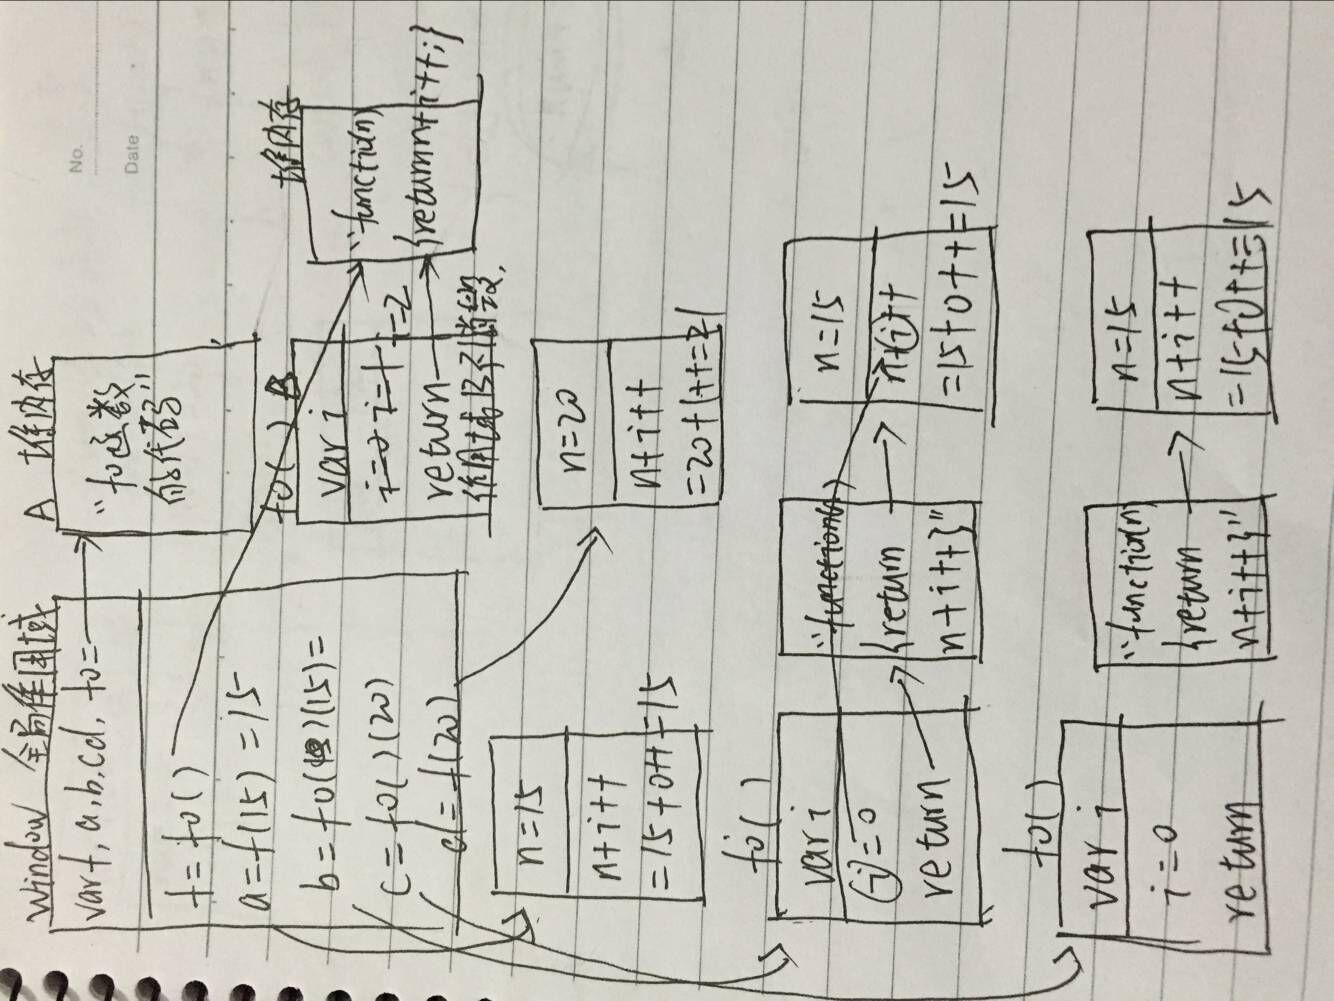 No.
Date
window 全局作用域
var f, a, b, c, d, fo=
f = fo()
a = f(15) = 15
b = fo()(15) =
c = fo()(20)
d = f(20)
A 堆内存
"fo函数
的代码"
fo() B
var i
i=0 i=1 i=2
return
作用域B不销毁,
堆内存
"function(n)
{return n+i++;}
n=15
n+i++
=15+0++=15
n=20
n+i++
=20+1++=21
fo()
var i
i=0
return
"function(n)
{return
n+i++}"
n=15
n+i++
=15+0++=15
fo()
var i
i=0
return
"function(n)
{return
n+i++}"
n=15
n+i++
=15+0++=15